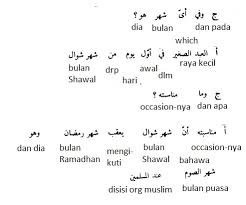 ج وفي أىّ شهر هو؟
dia bulan dan pada
which
أ العيد الصغير في أوّل يوم من شهر شوال
bulan drp awal raya kecil
Shawal hari dlm
ج وما مناسبته؟
occasion-nya dan apa
أ مناسبته أنّ شهر شوال يعقب شهر رمضان وهو
dan dia bulan mengi- bulan occasion-nya
Ramadhan kuti Shawal bahawa
شهر الصوم عند المسلمين
disisi org muslim bulan puasa